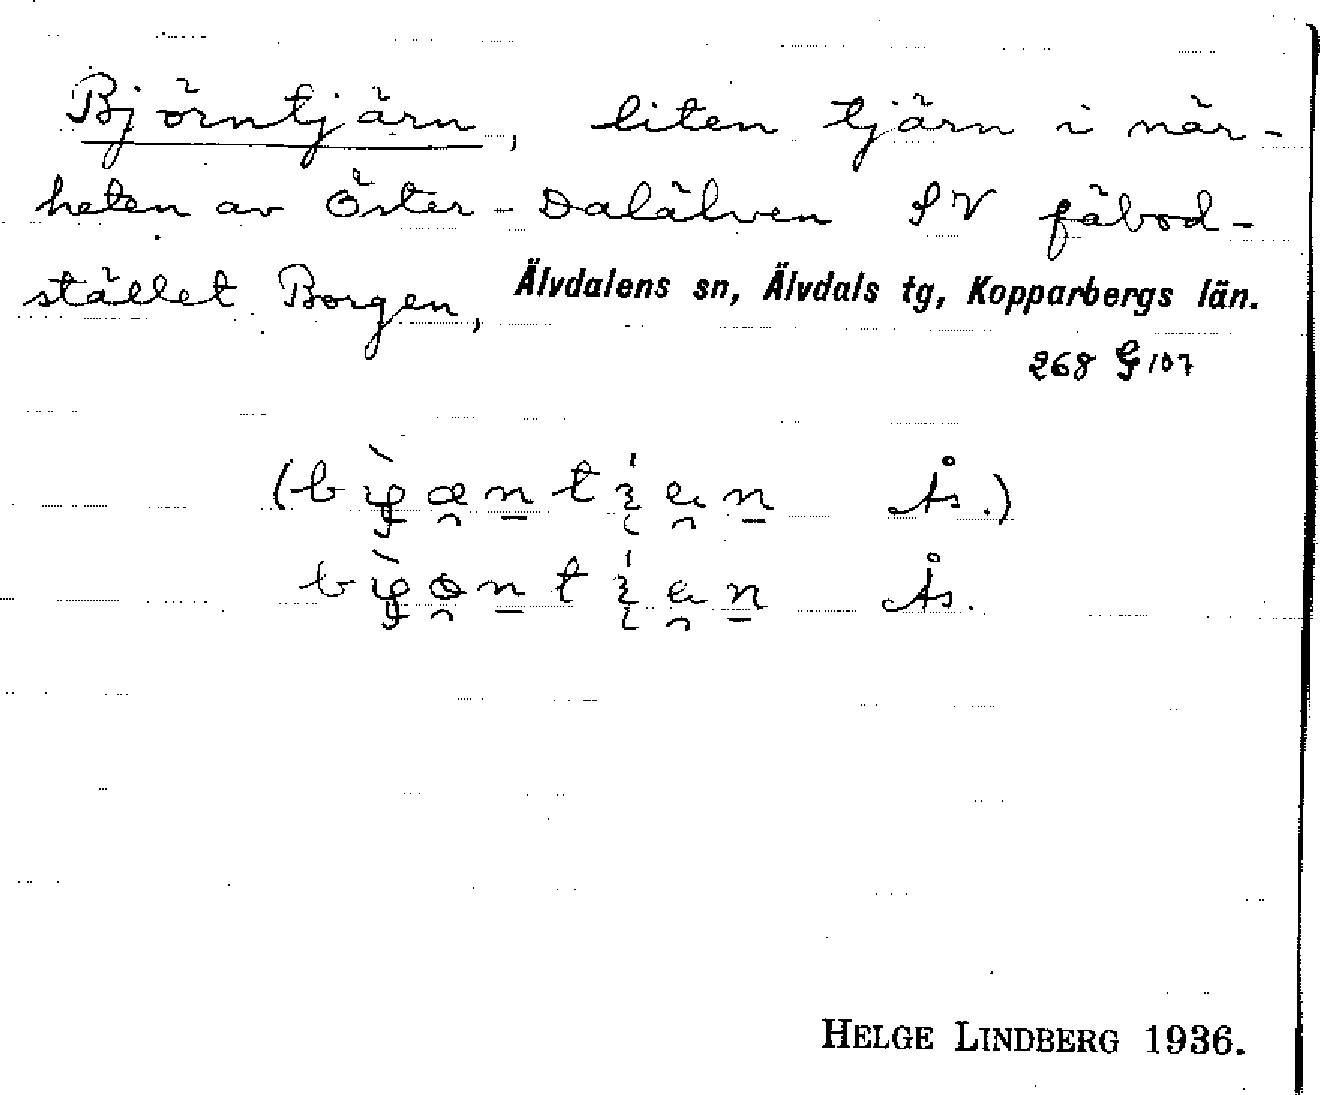 Björntjärn, liten tjärn i när-
heten av Öster-Dalälven SV fäbod-
stället Borgen, Älvdalens sn, Älvdals tg, Kopparbergs län.
268 G 107
Ås.)
Ås.
HELGE LINDBERG 1936.